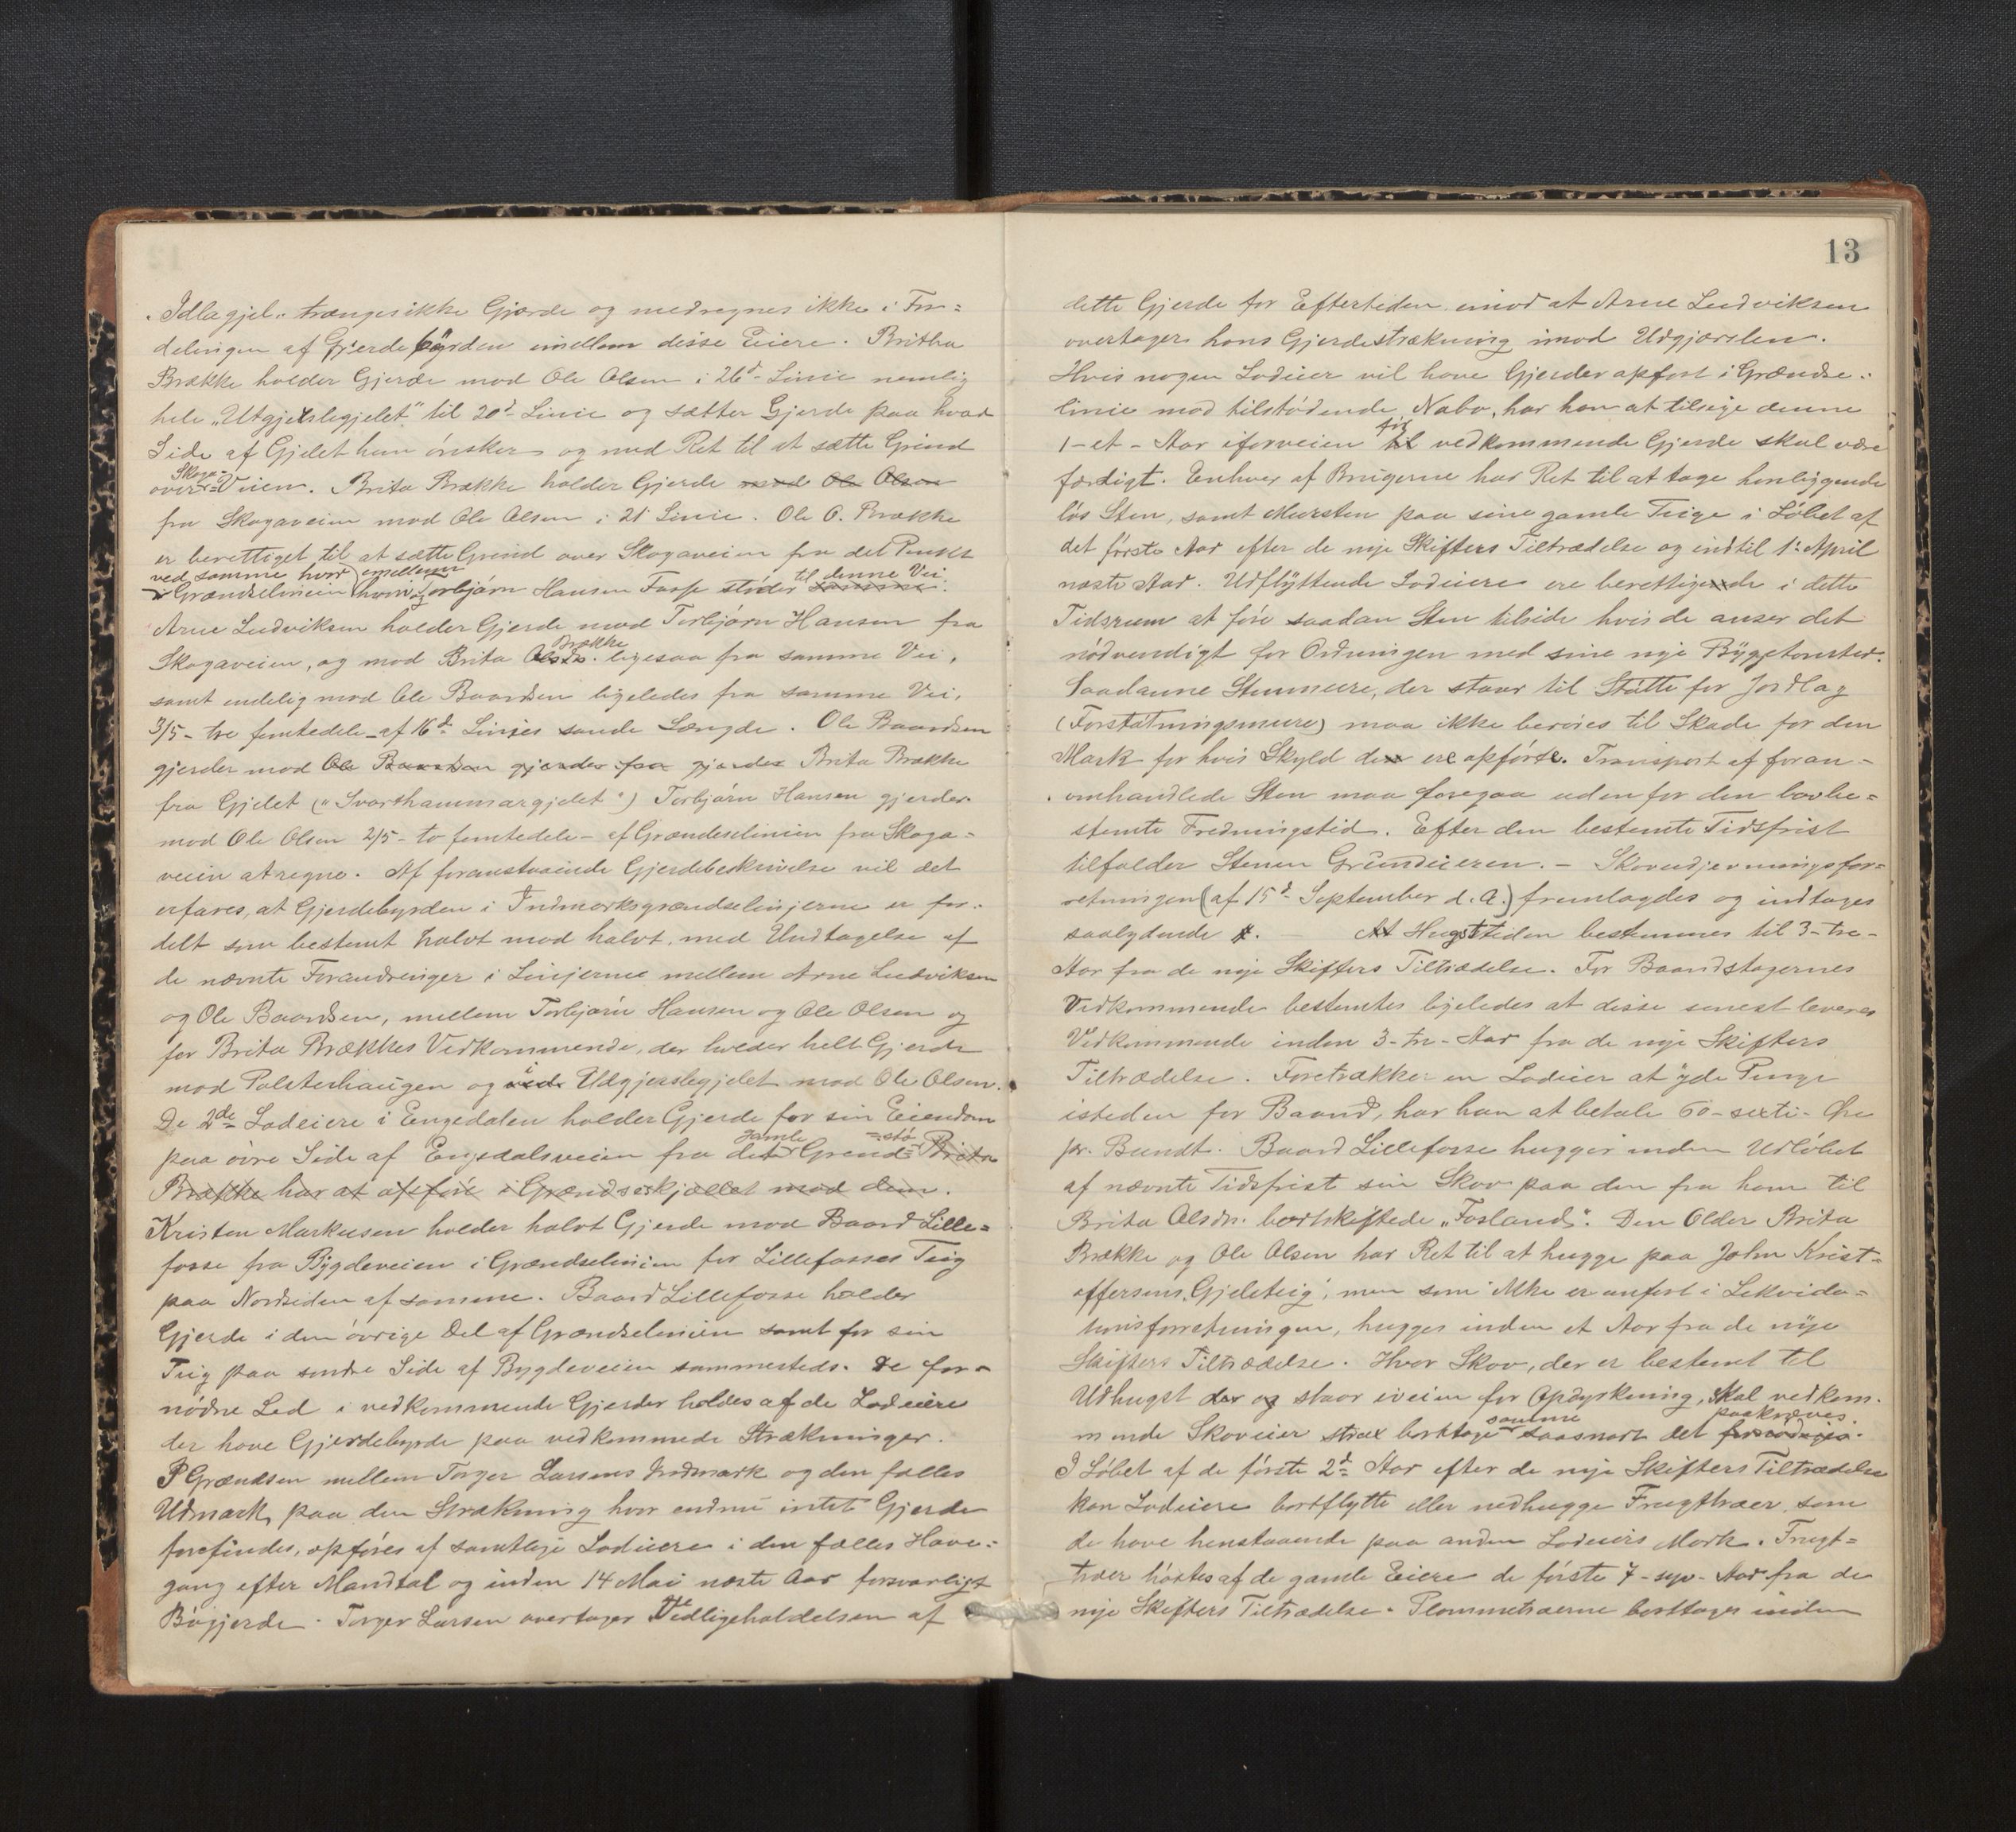 „Idlagjel„ trænges ikke Gjærde og medregnes ikke i For=
delingen af Gjerdebyrden imellem disse Eiere. Britha
Brække holder Gjerde mod Ole Olsen i 26d- Linie nemlig
hele „Utgjerslegjelet„ til 20d Linie og sætter Gjerde paa hvad
Side af Gjelet hun ønsker og med Ret til at sætte Grind
over Skoga=Veien. Brita Brække holder Gjerde mod Ole Olsen
fra Skogaveien mod Ole Olsen i 21 Linie. Ole O. Brække
er berettiget til at sætte Grind over Skogaveien fra det Punkt
ved samme hvor imellem
i Grændselinien hvori og Torbjørn Hansen Fosse støder til denne Vei samme.
Arne Ludviksen holder Gjerde mod Torbjørn Hansen fra
Skogaveien, og mod Brita Olsdr. Brække ligesaa fra samme Vei,
samt endelig mod Ole Baardsen ligeledes fra samme Vei,
3/5 - tre femtedele - af 16d Linies sande Længde. Ole Baardsen
gjerder mod Ole Baardsen gjerder fra gjerder Brita Brække
fra Gjelet („Svarthammargjelet“) Torbjørn Hansen gjerder
mod Ole Olsen 2/5 - to femtedele - af Grændselinien fra Skoga=
veien at regne. Af foranstaaende Gjerdebeskrivelse vil det
erfares, at Gjerdebyrden i Indmarksgrændselinjerne er for=
delt som bestemt halvt mod halvt, med Undtagelse af
de nævnte Forandringer i Linjerne mellem Arne Ludviksen
og Ole Baardsen, mellem Torbjørn Hansen og Ole Olsen og
for Brita Brækkes Vedkommende, der holder helt Gjerde
mod Polsterhaugen og ved i Udgjerslegjelet mod Ole Olsen.
De 2de Lodeiere i Engedalen holder Gjerde for sin Eiendom
paa øvre Side af Engedalsveien fra det gamle Grend=stø Brita
Brække har at opføre i Grændseskjellet mod dem.
Kristen Markusen holder halvt Gjerde mod Baard Lille=
fosse fra Bygdeveien i Grændselinien for Lillefosses Teig
paa Nordsiden af samme. Baard Lillefosse holder
Gjerde i den øvrige Del af Grændselinien samt for sin
Teig paa søndre Side af Bygdeveien sammesteds. De for=
nødne Led i vedkommende Gjerder holdes af de Lodeiere
der have Gjerdebyrde paa vedkommede Strækninger.
I Grændsen mellem Torger Larsens Indmark og den fælles
Udmark paa den Strækning hvor endnu intet Gjerde
forefindes, opføres af samtlige Lodeiere i den fælles Have=
gang efter Mandtal og inden 14 Mai næste Aar forsvarligt
Bøgjerde. Torger Larsen overtager Vedligeholdelsen af
13
dette Gjerde for Eftertiden imod at Arne Ludviksen
overtager hans Gjerdestrækning imod Udgjærslen.
Hvis nogen Lodeier vil have Gjerder opført i Grændse=
linie mod tilstødende Nabo, har han at tilsige denne
1-et- Aar iforveien før til vedkommende Gjerde skal være
færdigt. Enhver af Brugerne har Ret til at tage henliggende
løs Sten, samt Mursten paa sine gamle Teige i Løbet af
det første Aar efter de nye Skifters Tiltrædelse og indtil 1ste April
næste Aar. Udflyttende Lodeiere ere berettigende i dette
Tidsrum at føre saadan Sten tilside hvis de anser det
nødvendigt for Ordningen med sine nye Byggetomter.
Saadanne Stenmure, der staar til Støtte for Jordlag
(Forstøtningsmure) maa ikke berøves til Skade for den
Mark for hvis Skyld der ere opførte. Transport af foran=
omhandlede Sten maa foregaa udenfor den lovbe=
stemte Fredningstid. Efter den bestemte Tidsfrist
tilfalder Stenen Grundeieren. – Skovudjevningsfor=
retningen (af 15d September d. A.) fremlagdes og indtages
saalydende #. At Hugsttiden bestemmes til 3-tre-
Aar fra de nye Skifters Tiltrædelse. For Baandstagernes
Vedkommende bestemtes ligeledes at disse senest leveres
Vedkommende inden 3-tre- Aar fra de nye Skifters
Tiltrædelse. Foretrækker en Lodeier at yde Penge
istedenfor Baand, har han at betale 60-sexti- Øre
pr. Bundt. Baard Lillefosse hugger inden Udløbet
af nævnte Tidsfrist sin Skov paa den fra ham til
Brita Olsdr. bortskiftede „Fosland“. Den Older Brita
Brække og Ole Olsen har Ret til at hugge paa John Krist=
offersens „Gjeleteig“, men som ikke er anført i Lekvida=
tionsforretningen, hugges inden et Aar fra de nye
Skifters Tiltrædelse. Hvor Skov, der er bestemt til
Udhugst der og staar iveien for Opdyrkning, skal vedkom=
mende Skoveier strax borttage samme saasnart det paakræves. forlanges.
I Løbet af de første 2de Aar efter de nye Skifters Tiltrædelse
kan Lodeiere bortflytte eller nedhugge Frugttræer, som
de have henstaaende paa anden Lodeiers Mark. Frugt=
træer høstes af de gamle Eiere de første 7-syv- Aar fra de
nye Skifters Tiltrædelse. Plommetræerne borttages inden